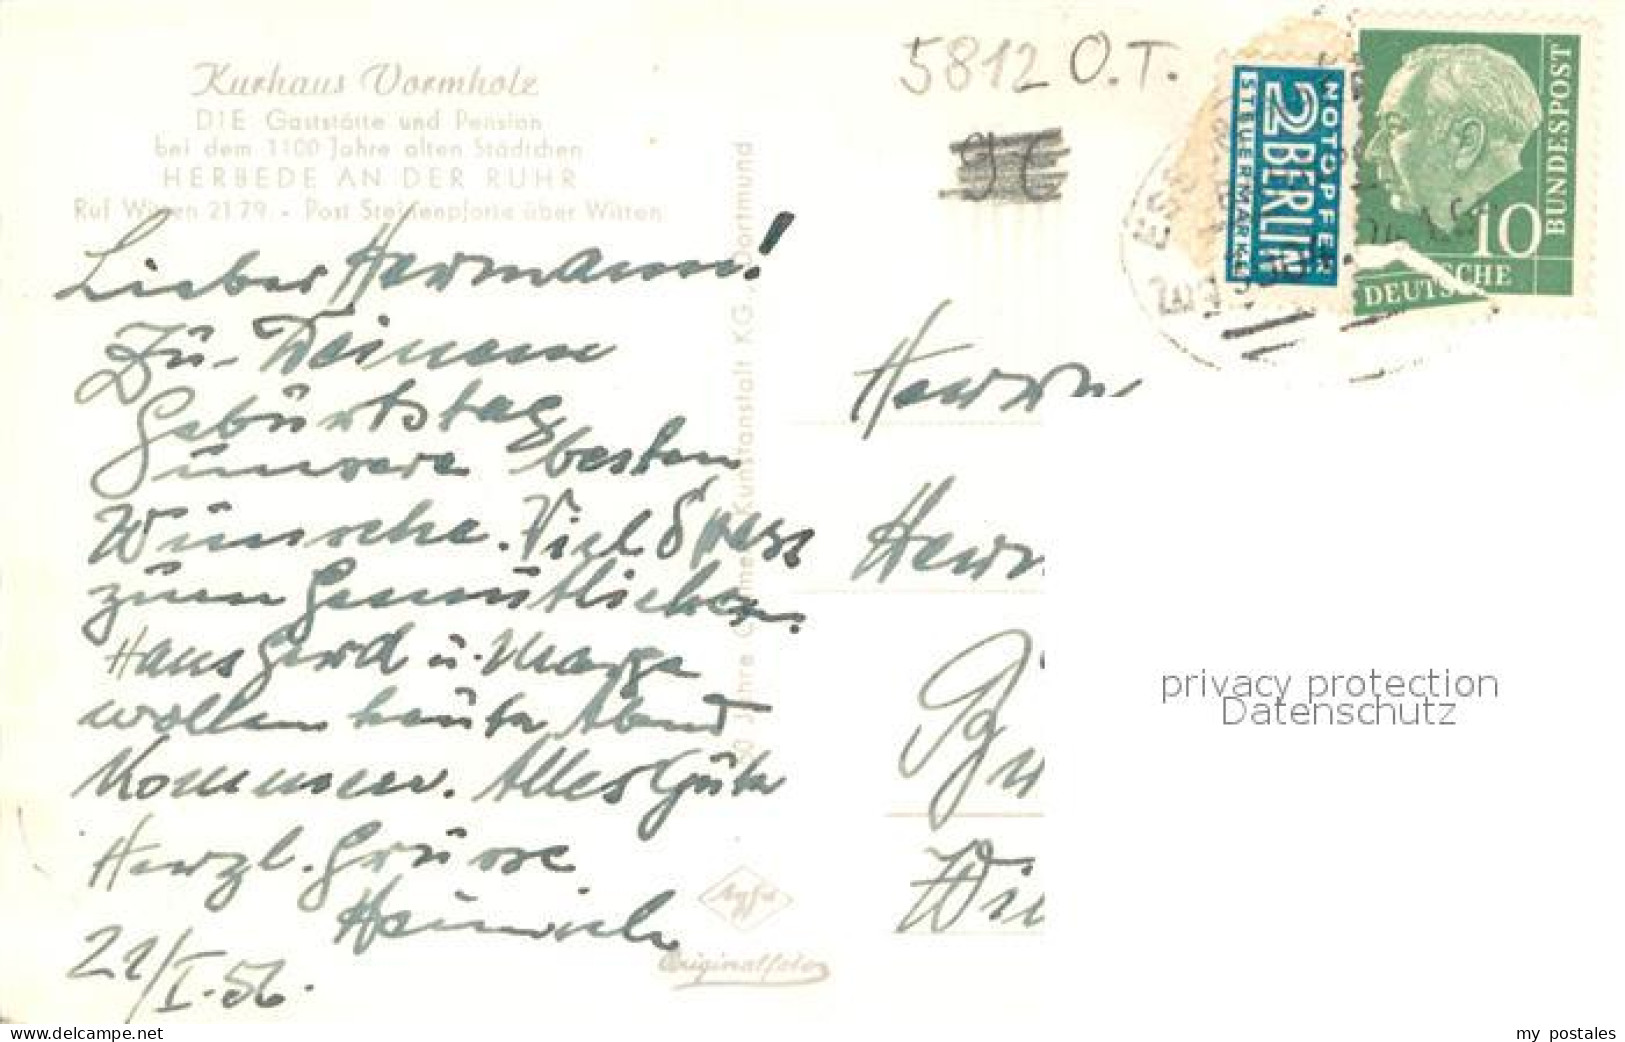 Kurhaus Vormholz
DIE Gaststätte und Pension
bei dem 1100 Jahre alten Städtchen
HERBEDE AN DER RUHR
Ruf Witten 2179 - Post Steinenpforte über Witten
Lieber Hermann!
Zu Deinem
Geburtstag
unsere besten
Wünsche. Viel Spass
zum Gemütlichen.
Hans Gerd u. Marga
wollen heute Abend
kommen. Alles Gute
Herzl. Grüsse
Heinrich
21/I.56.
50 Jahre Kunstanstalt KG, Dortmund
Agfa
Originalfoto
5812 O.T.
NOTOPFER
2 BERLIN
STEUERMARKE
BUNDESPOST
10
DEUTSCHE
Herrn
Herm
privacy protection
Datenschutz
www.delcampe.net
my postales